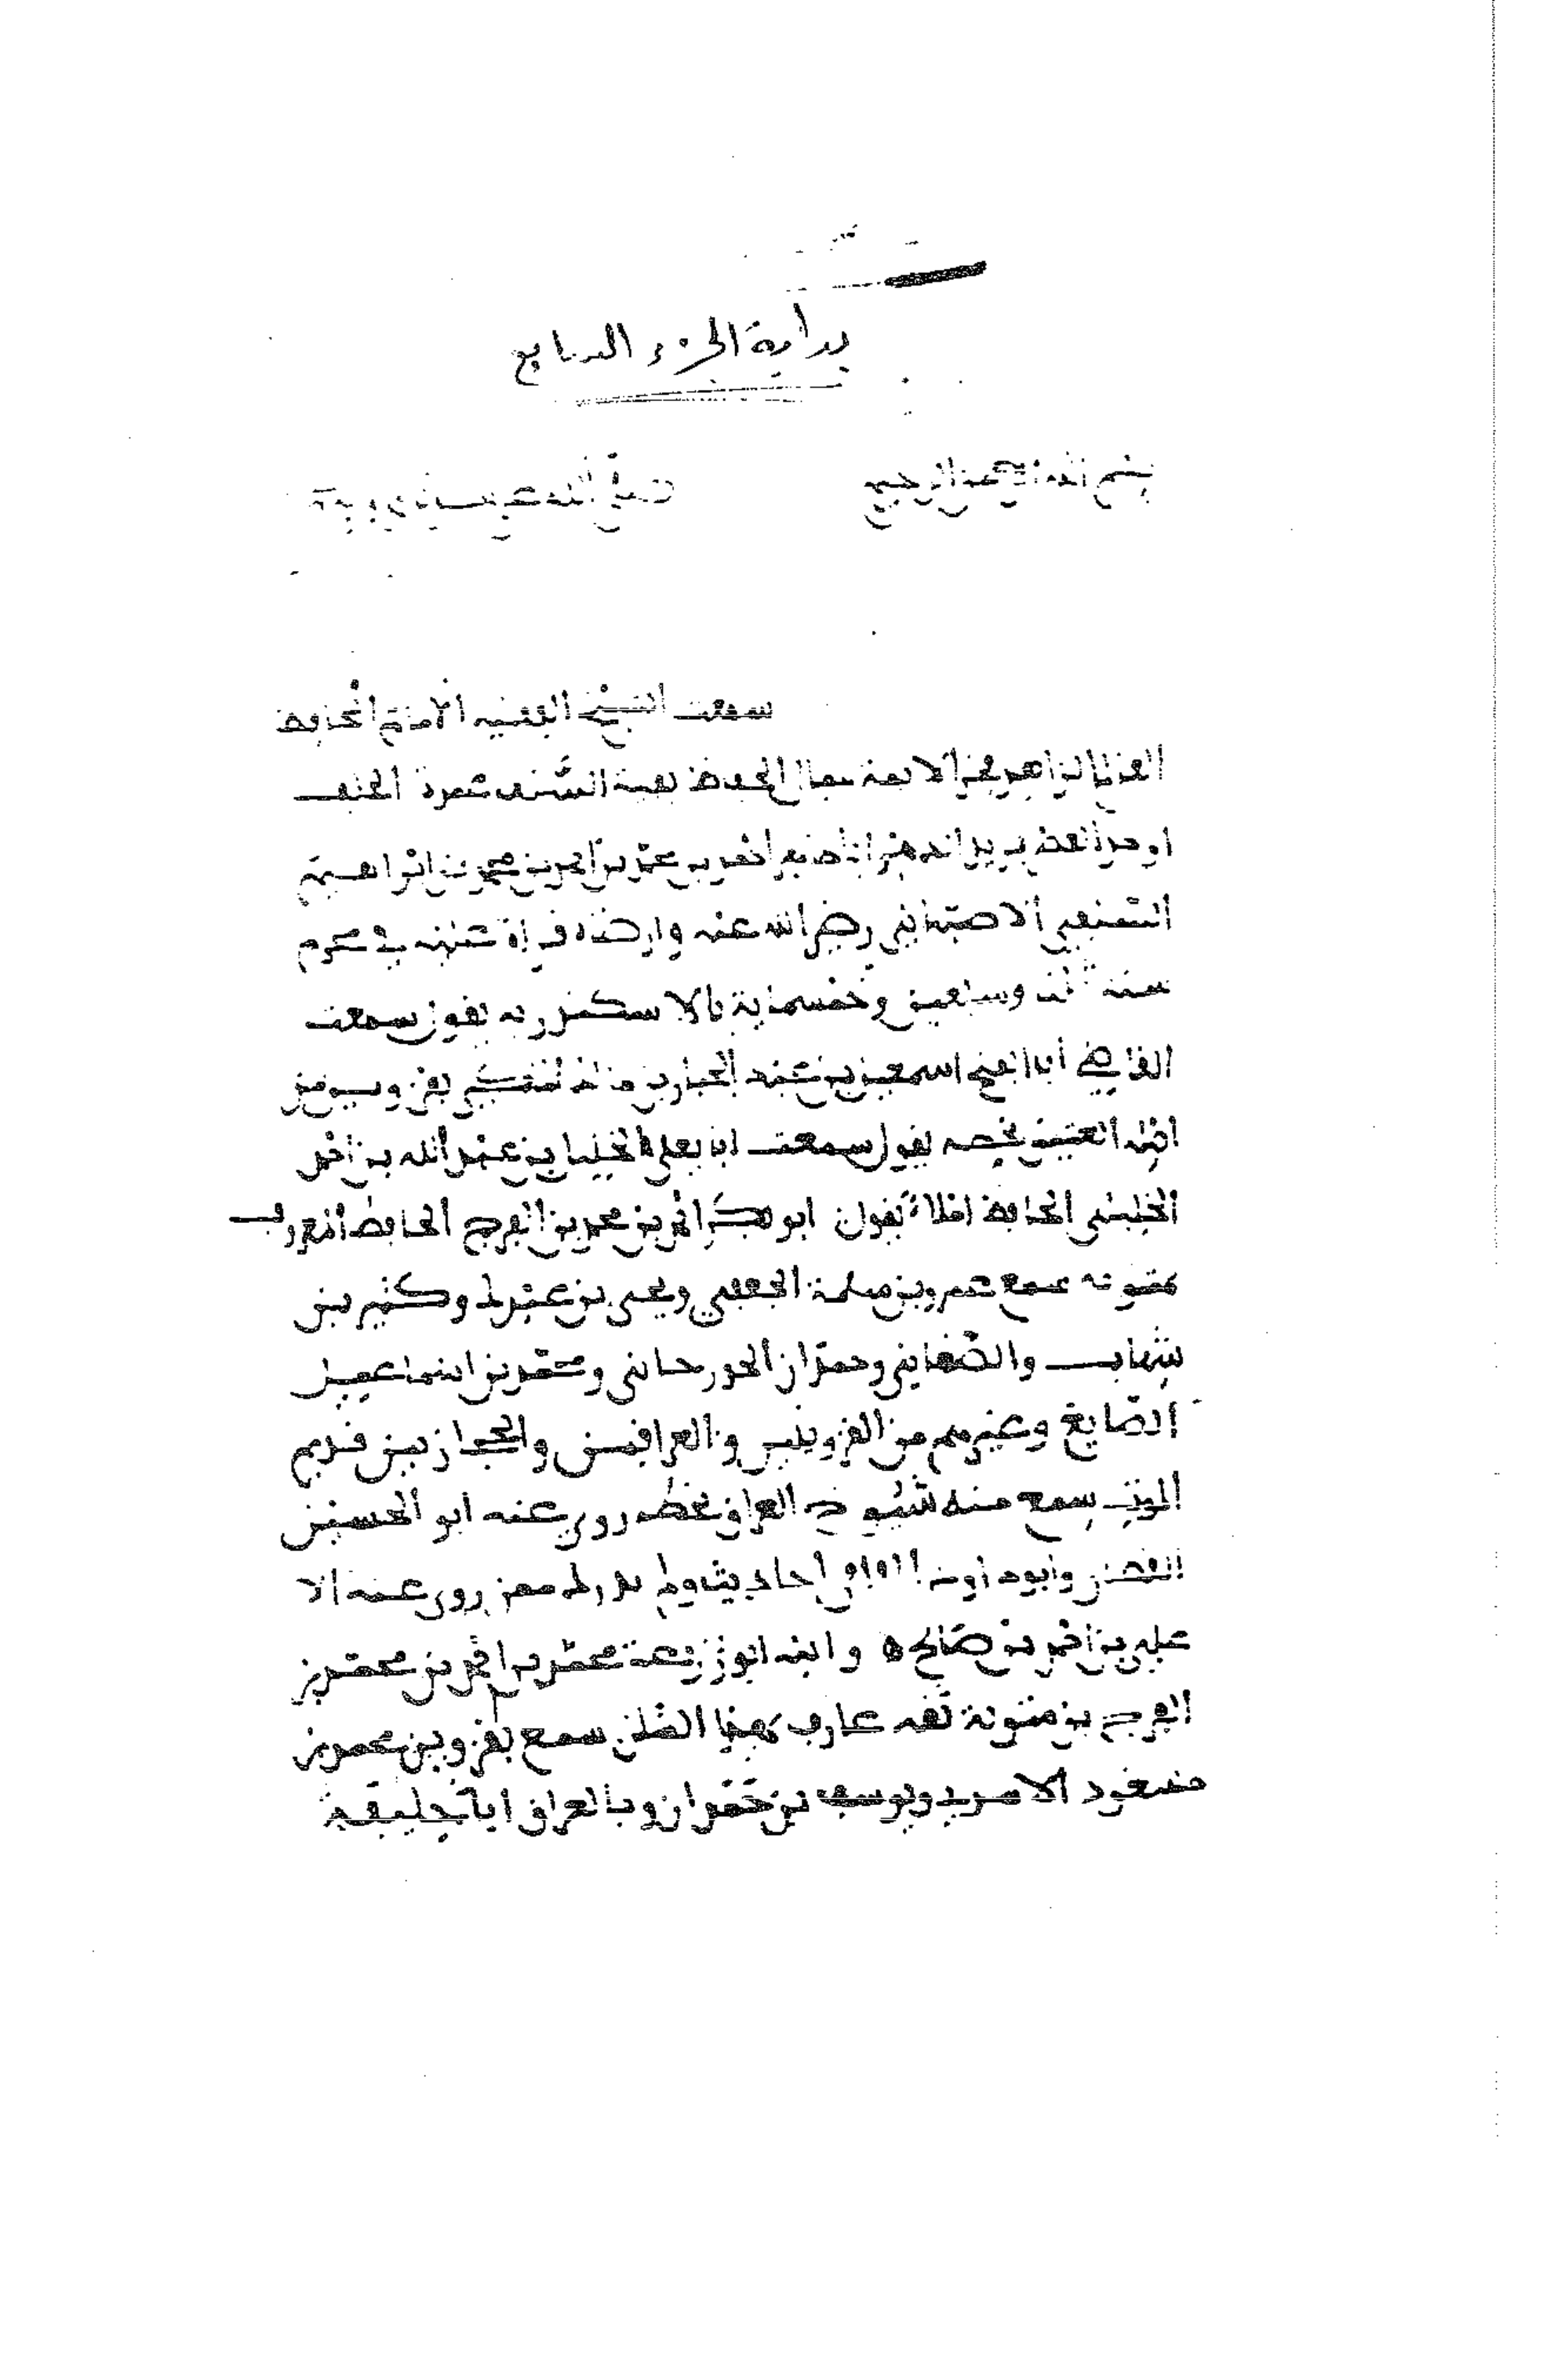 بداية الجزء السابع
بسم الله الرحمن الرحيم
سمعت الشيخ الفقيه الامام الحافظ
العالم الزاهد فخر الائمة جمال الحفاظ بقية السلف عمدة الخلف
اوحد العصر فريد الدهر ابا طاهر احمد بن محمد بن احمد بن محمد بن ابراهيم
السلفي الاصبهاني رضي الله عنه وارضاه قراة عليه في محرم
سنة ثلث وسبعين وخمسماية بالاسكندرية يقول سمعت
القاضي ابا الفتح اسمعيل بن عبد الجبار بن ماك بقزوين من
اصله العتيق بخطه يقول سمعت ابا يعلى الخليل بن عبد الله بن احمد
الخليلي الحافظ املاء يقول ابو بكر احمد بن محمد بن الفرج الحافظ المعروف
بمتويه سمع عمرو بن سلمة الجعفي ويحيى بن عبدك وكثير بن
شهاب والصغاني وحمدان الجورجاني ومحمد بن اسماعيل
الصايغ وغيرهم من القزوينيين والعراقيين والحجازيين قديم
الموت سمع منه شيوخ العراق بخطه روى عنه ابو الحسين
القطان وابو داود احاديث ولم ادرك ممن روى عنه الا
علي بن احمد بن صالح ه وابنه ابو زرعة محمد بن احمد بن محمد بن
الفرج بن متوية ثقه عارف بهذا الشان سمع بقزوين محمد بن
مسعود الاسدي ويوسف بن حمدان وبالعراق ابا خليفة